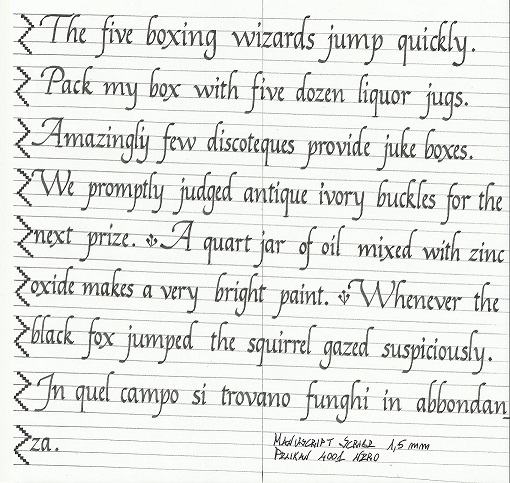 The five boxing wizards jump quickly.
Pack my box with five dozen liquor jugs.
Amazingly few discoteques provide juke boxes.
We promptly judged antique ivory buckles for the
next prize. A quart jar of oil mixed with zinc
oxide makes a very bright paint. Whenever the
black fox jumped the squirrel gazed suspiciously.
In quel campo si trovano funghi in abbondan_
za.
MANUSCRIPT SCRIBE 1,5 mm
PELIKAN 4001 NERO